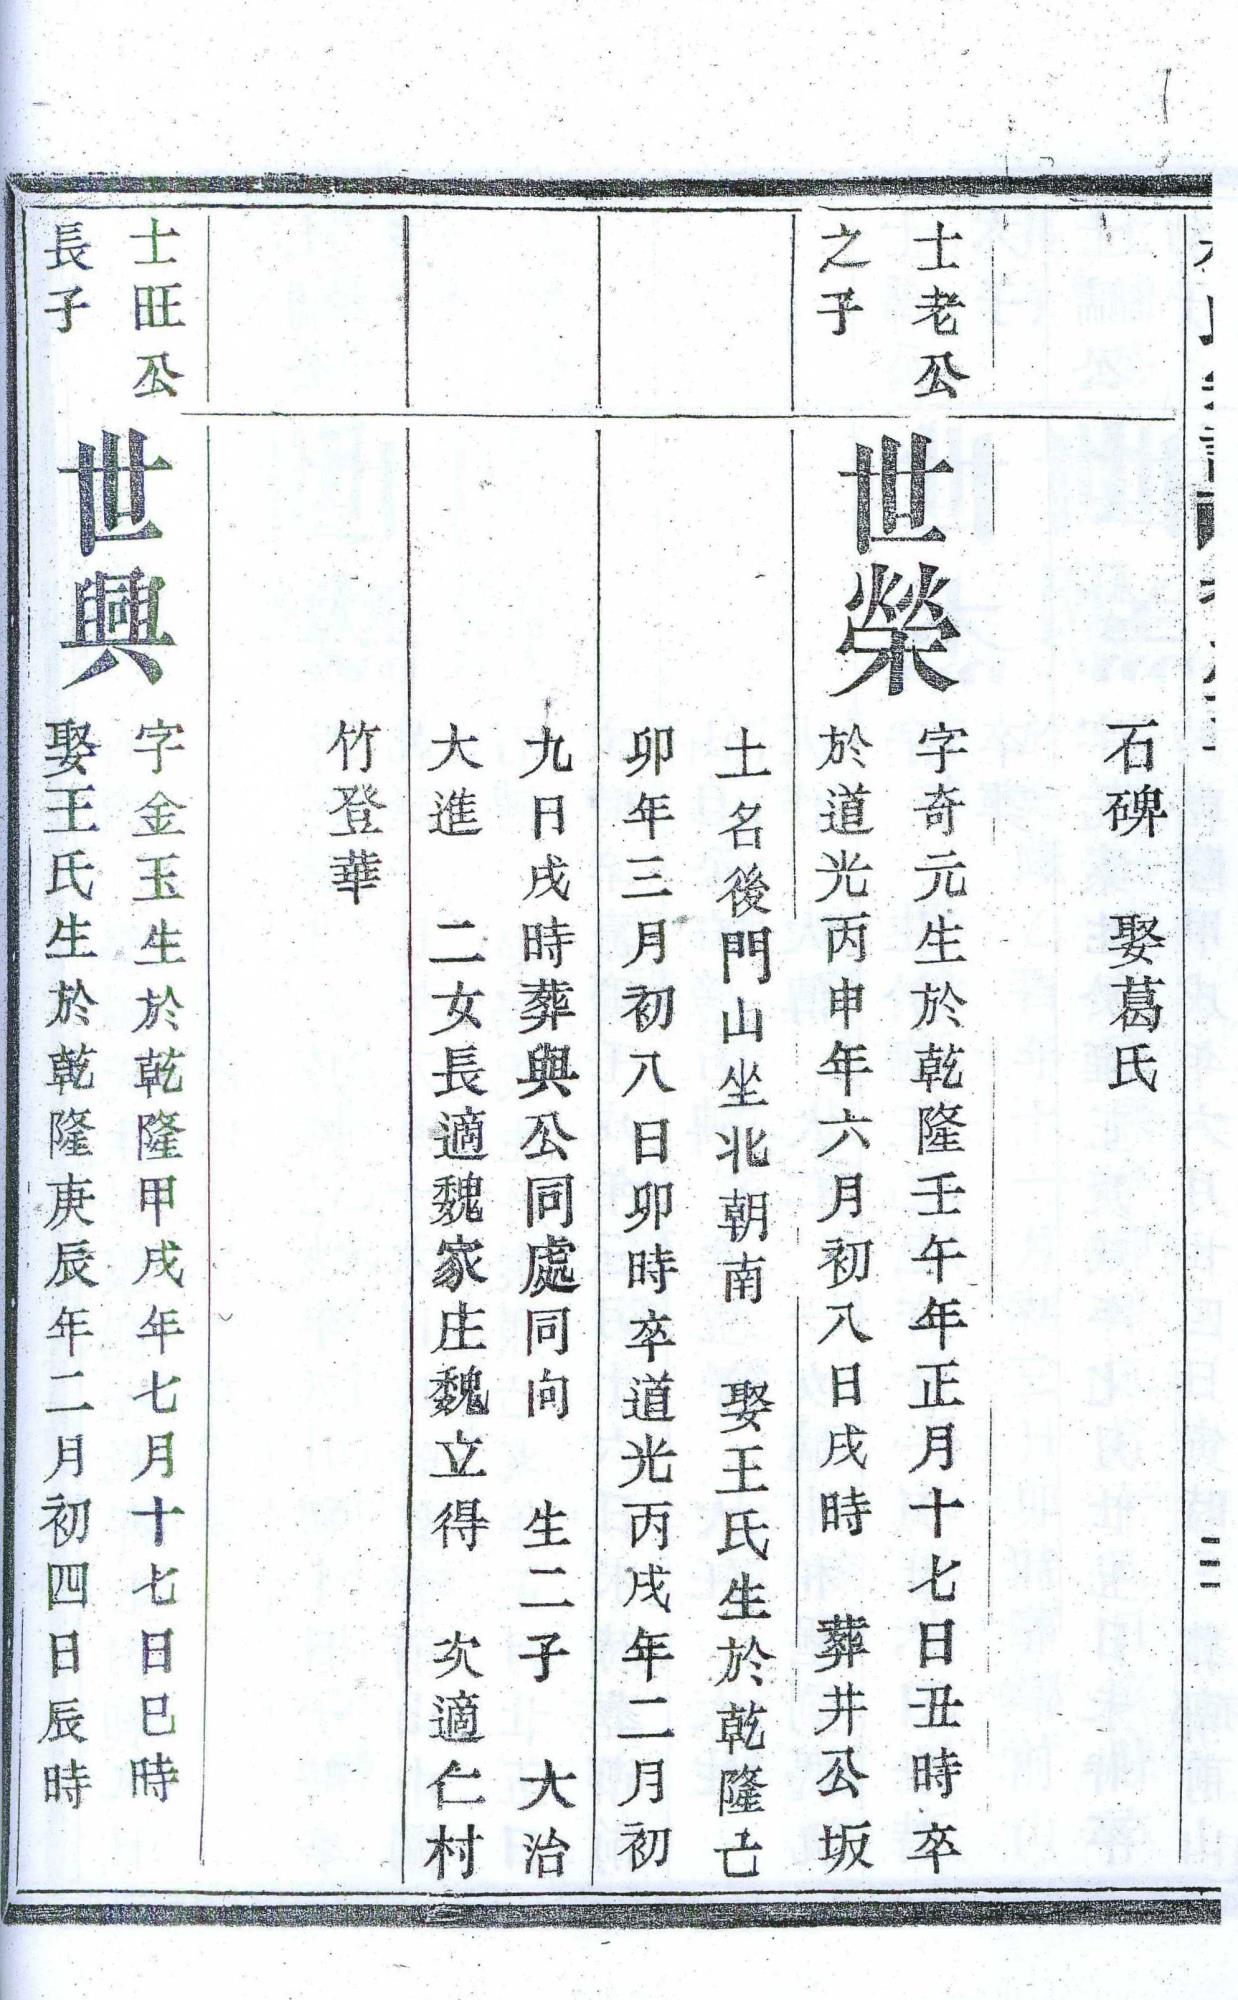 石碑　娶葛氏
士老公
之子
世榮
字奇元生於乾隆壬午年正月十七日丑時卒
於道光丙申年六月初八日戌時　葬井公坂
土名後門山坐北朝南　娶王氏生於乾隆亡
卯年三月初八日卯時卒道光丙戌年二月初
九日戌時葬與公同處同向　生二子　大治
大進　二女長適魏家庄魏立得　次適仁村
竹登華
士旺公
長子
世興
字金玉生於乾隆甲戌年七月十七日巳時
娶王氏生於乾隆庚辰年二月初四日辰時